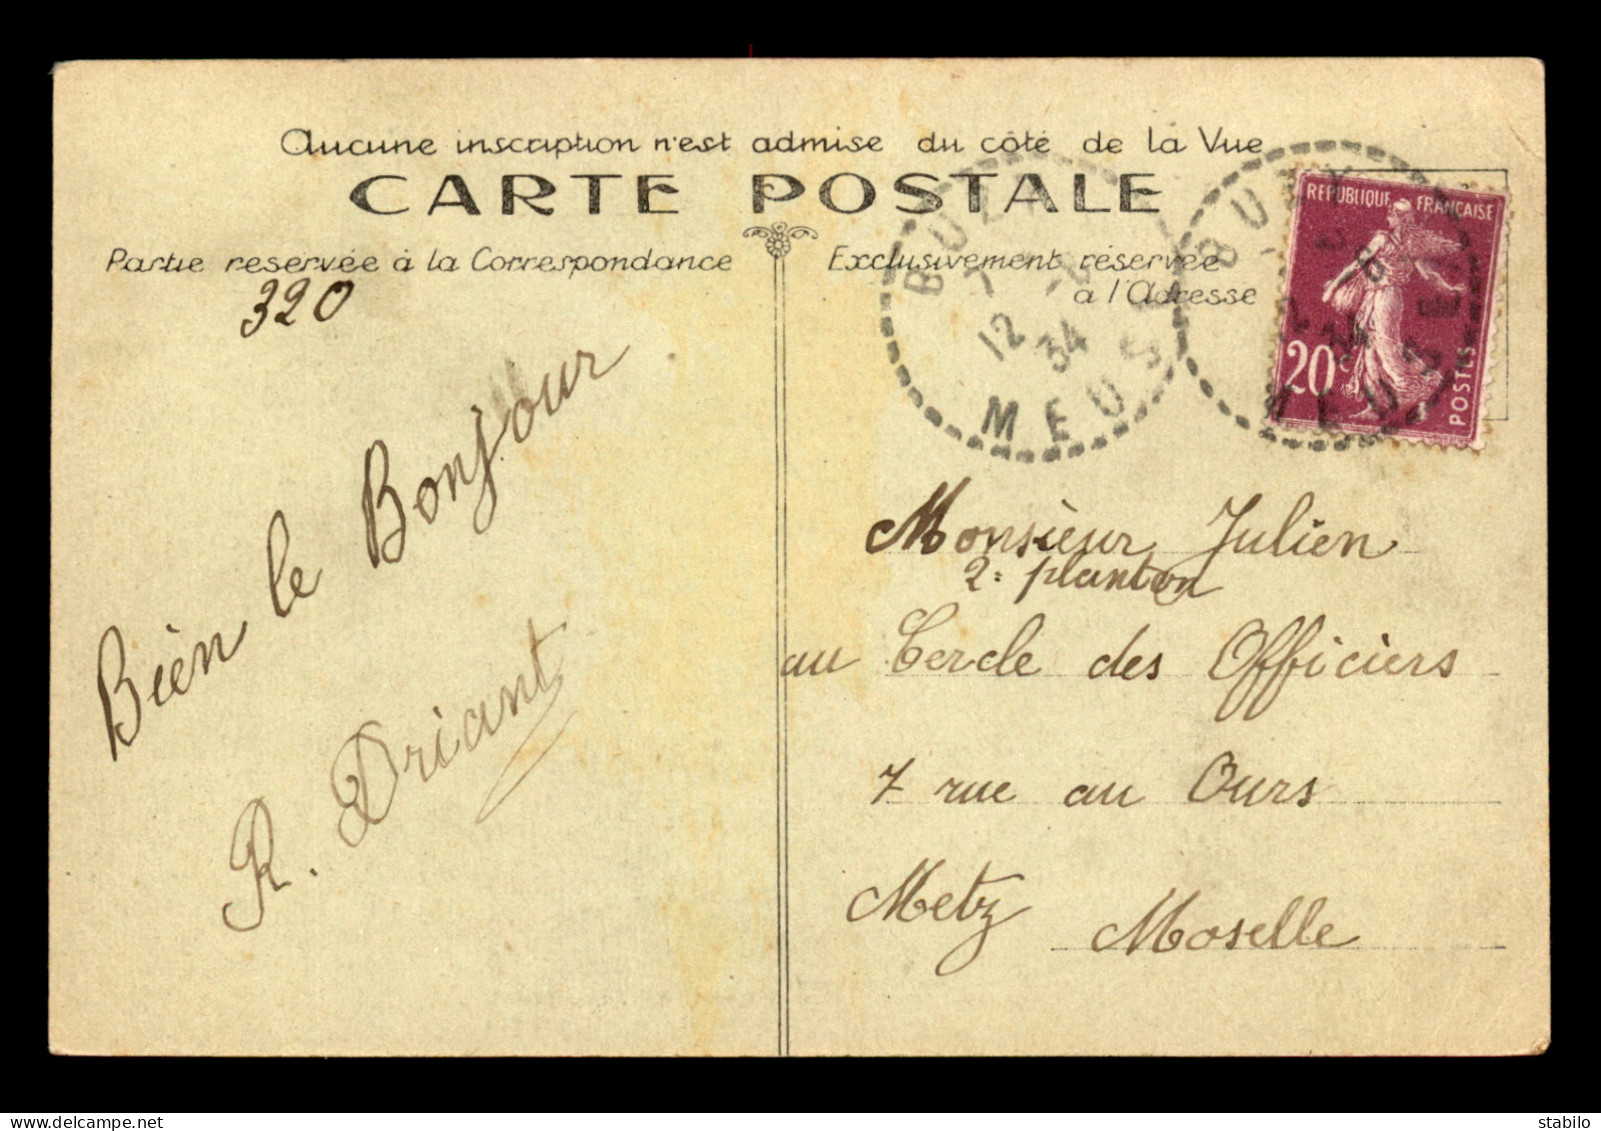 Aucune inscription n'est admise du côté de la Vue
CARTE POSTALE
Partie reservée à la Correspondance
Exclusivement réservée
a l'Adresse
320
Bien le Bonjour
R. Driant
BUZY
7 -8
12 34
MEUSE
BUZY
-8
34
MEUSE
REPUBLIQUE FRANÇAISE
20c
POSTES
Monsieur Julien
2: planton
au Cercle des Officiers
7 rue au Ours
Metz Moselle
stabilo
www.delcampe.net